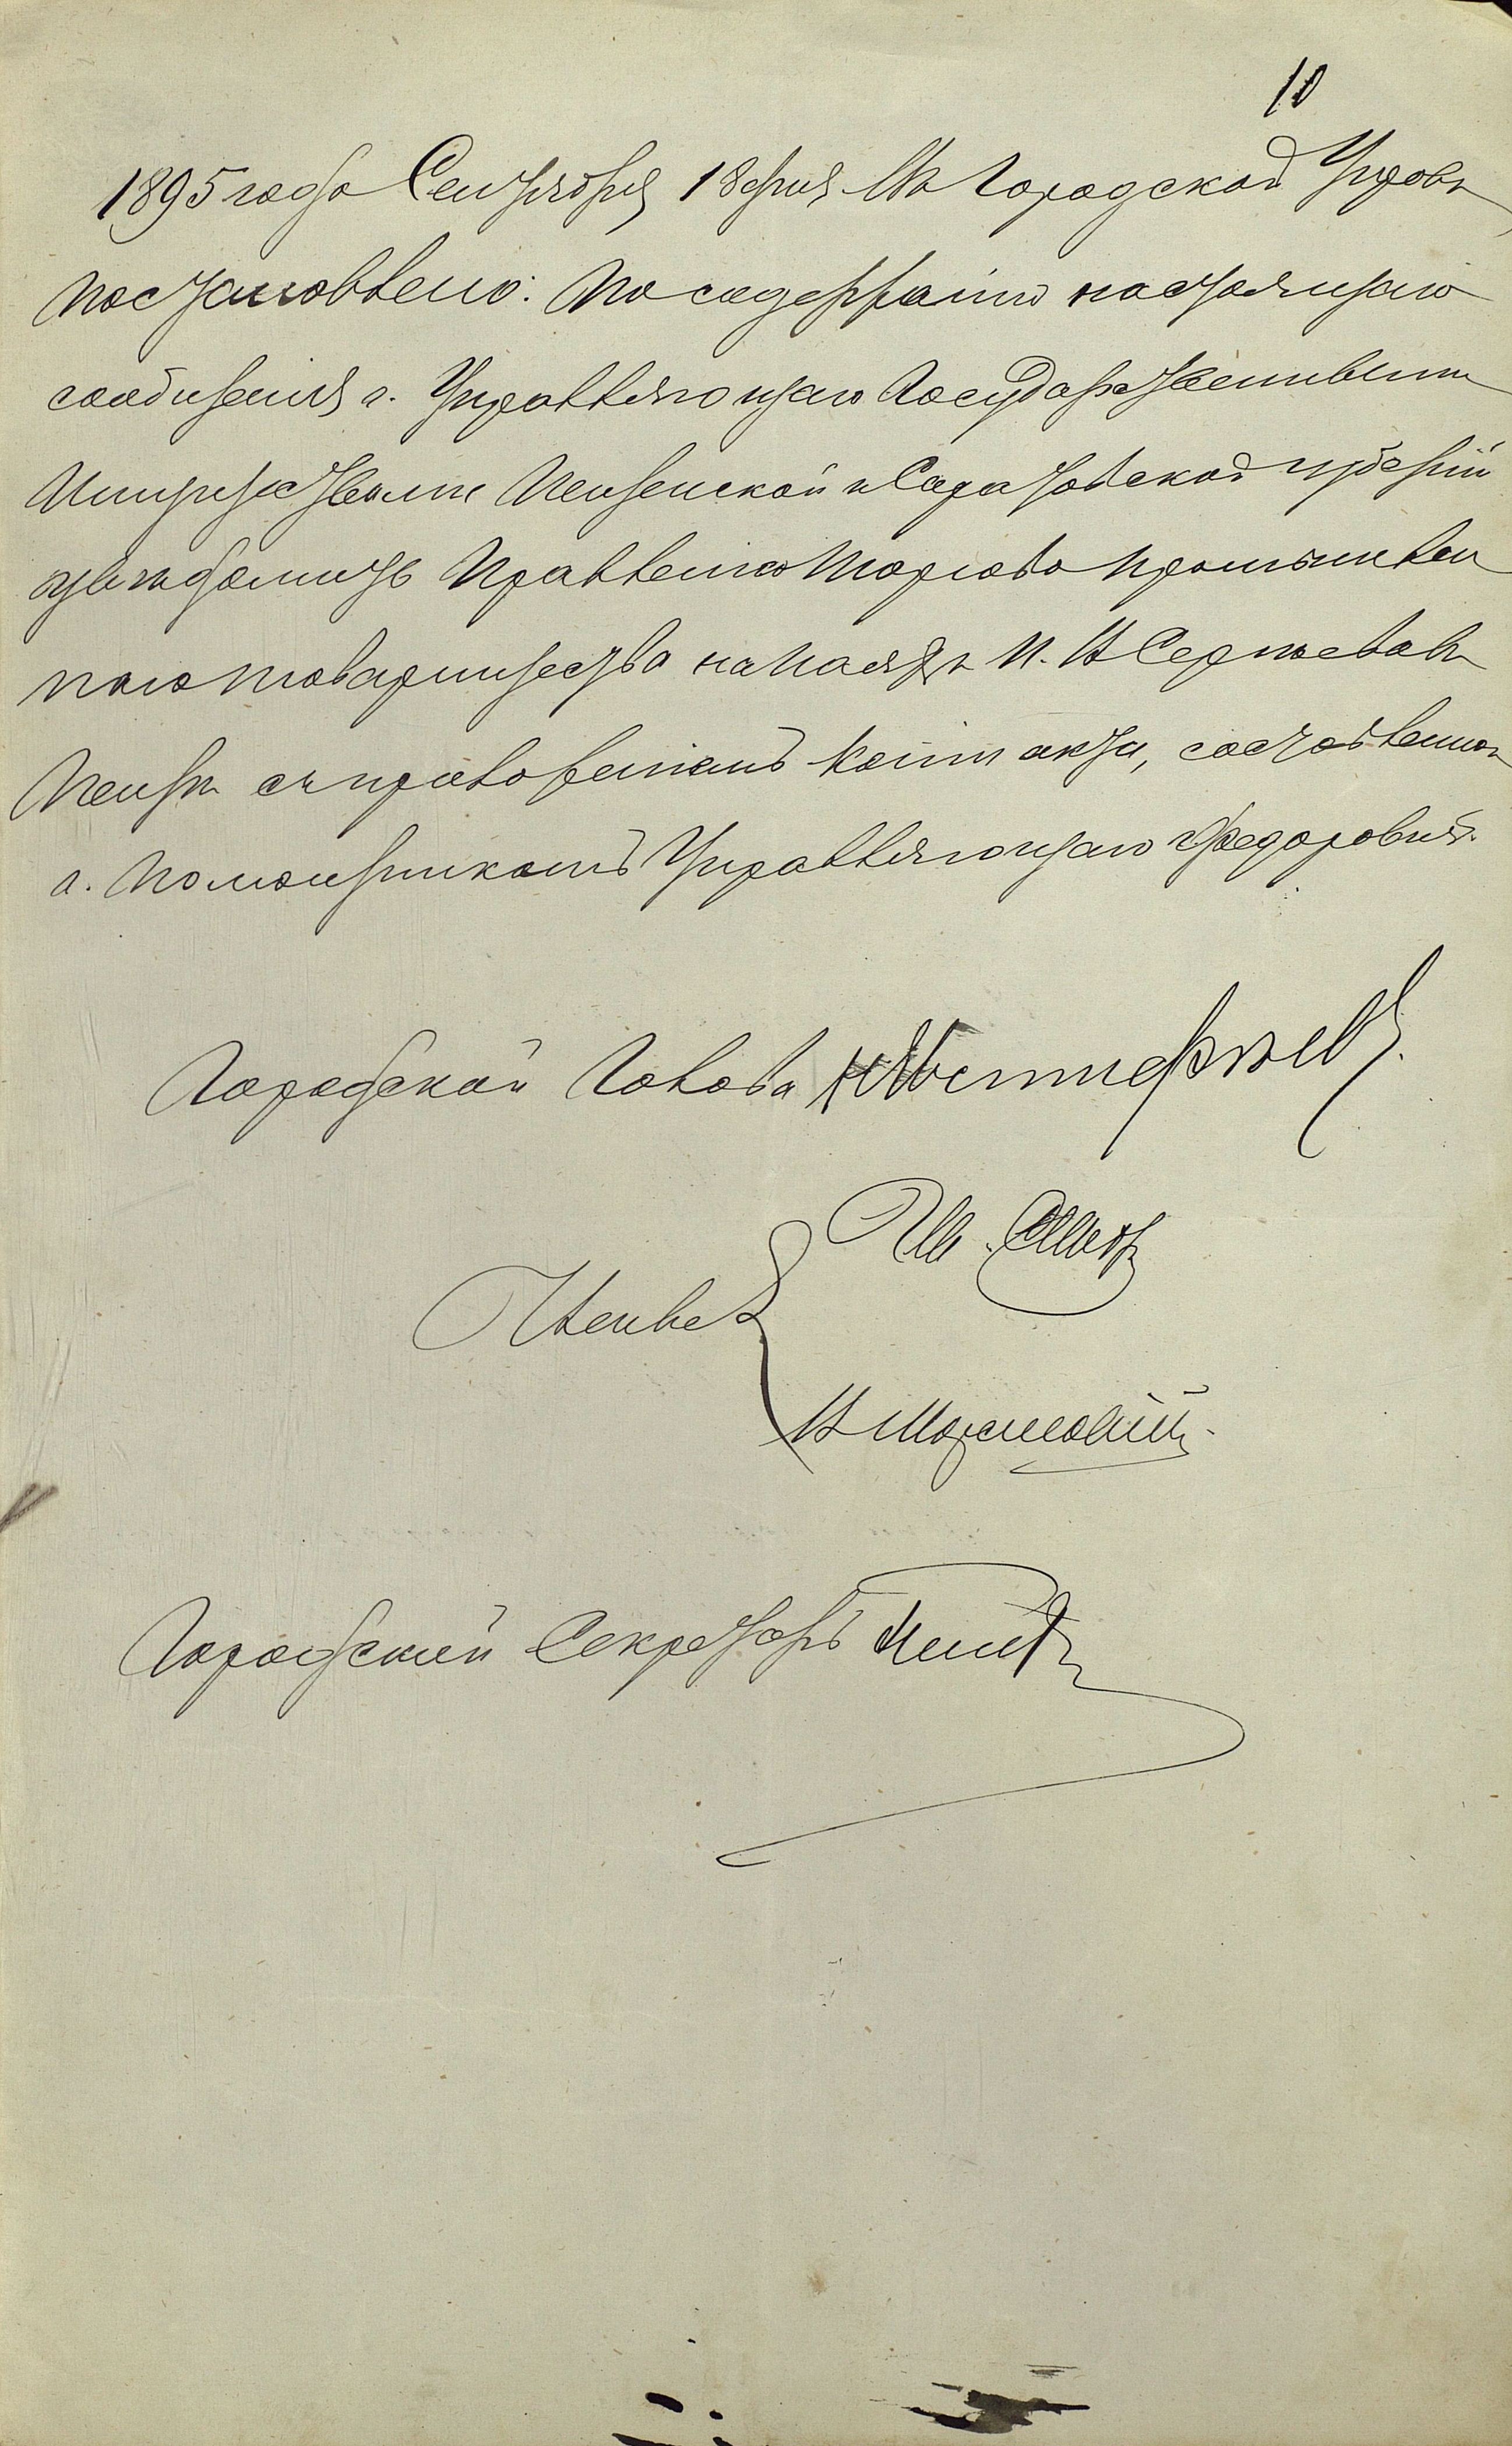 10
1895 года Сентября 18 дня Въ Городской Управѣ
постановлено: По содержанію настоящаго
сообщенія г. Управляющаго Государственными
Имуществами Пензенской и Саратовской губерній
увѣдомить Правленіе Торгово промышлен
наго товарищества на паяхъ И. В Сергѣева въ
Пензѣ съ препровожденіемъ копіи акта, составленнаго
г. Помощникомъ Управляющаго Федоровичъ.
Городской Голова Н Евстифѣевъ.
Ив.
Члены
В
Городской Секретарь